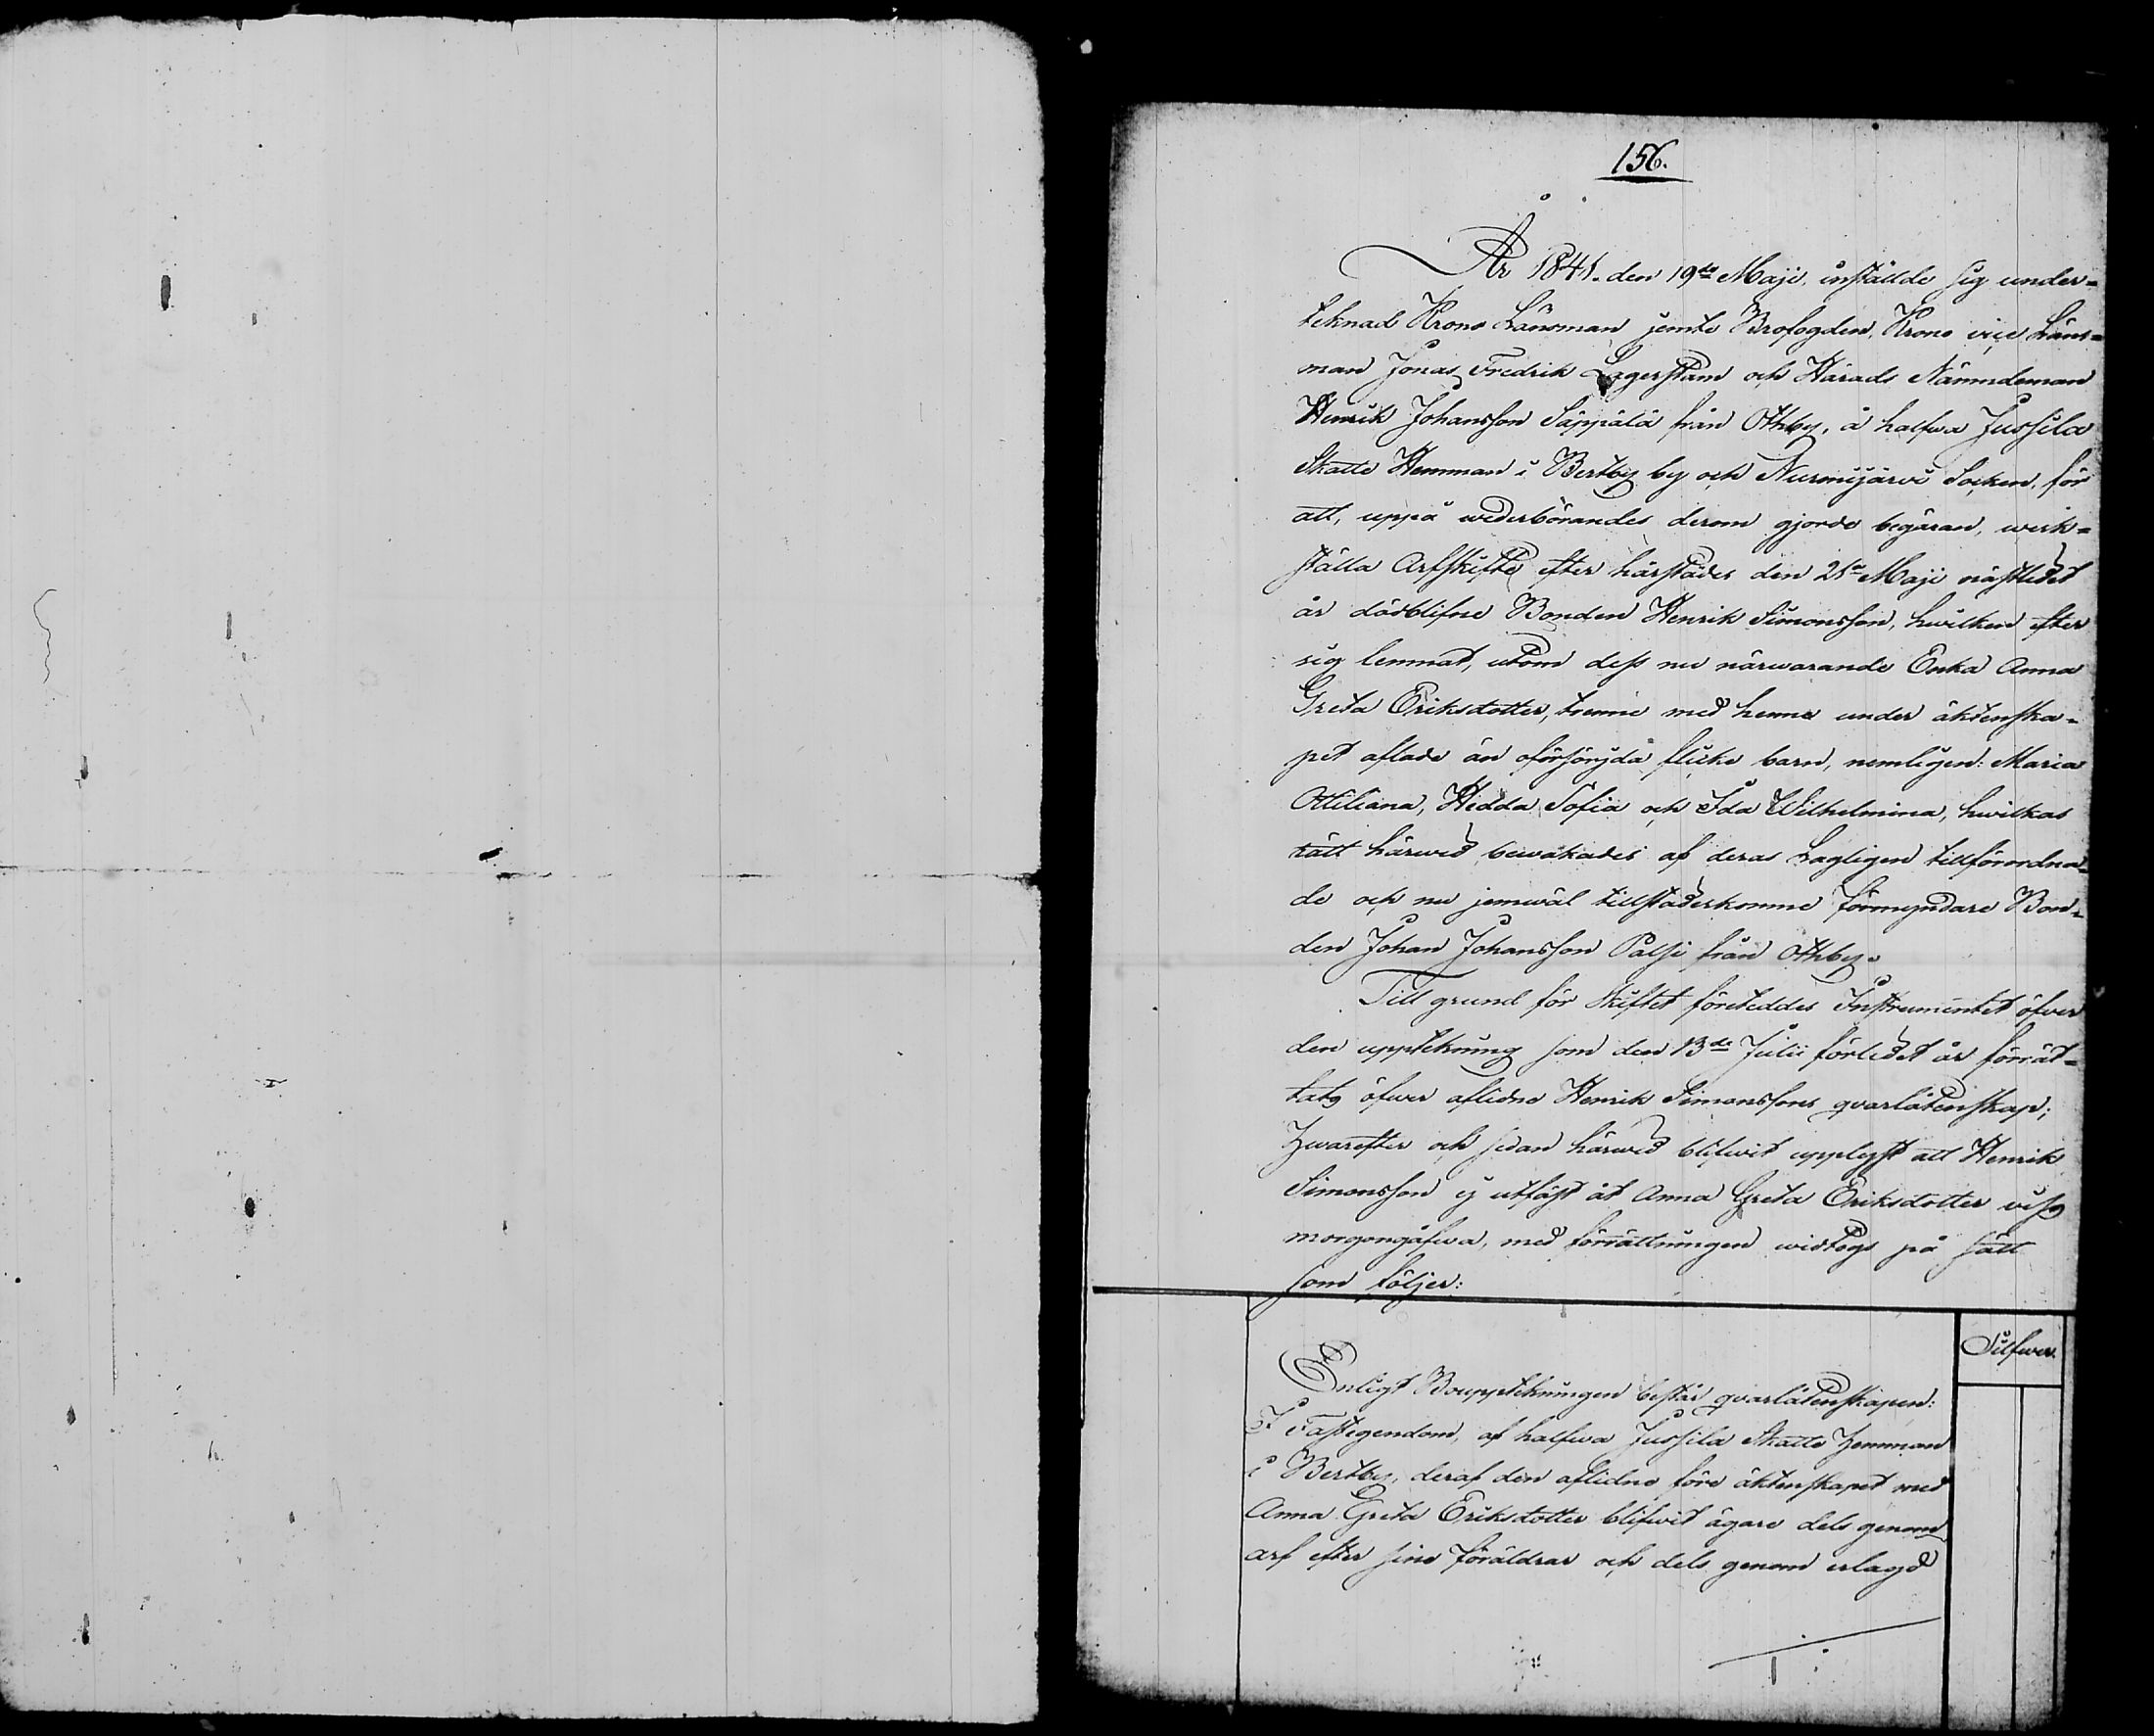 156.
År 1841. den 19de Maji, inställde sig under-
teknad Krono Länsman jemte Brofogden, Krono vice Läns-
man Jonas Fredrik Lagerstam och Härads Nämndeman
Henrik Johansson Säppälä från Othby, å halfwa Jussila
Skatte Hemman i Bertby by och Nurmijärvi Socken, för
att, uppå wederbörandes derom gjorde begäran, werk-
ställa Arfskifte efter härstädes den 21a Maji nästledet
år dödblifne Bonden Henrik Simonsson, hwilken efter
sig lemnat, utom dess nu närwarande Enka Anna
Greta Eriksdotter, trenne med henne under äktenska-
pet aflade än oförsörjda flicke barn, nemligen: Maria
Ottiliana, Hedda Sofia och Ida Wilhelmina, hwilkas
rätt härwid bewakades af deras Lagligen tillförordna-
de och nu jemwäl tillstäderkomne Förmyndare Bon-
den Johan Johansson Palsi från Othby.
Till grund för Skiftet företeddes Instrumentet öfwer
den uppteknung som den 13de Julii förledet år förrät-
tats öfwer aflidne Henrik Simonssons qvarlåtenskap;
Hwarefter och sedan härwid blifwit upplyst att Henrik
Simonsson ej utfäst åt Anna Greta Eriksdotter viss
morgongåfwa, med förrättningen widtogs på sätt
som följer:
Silfwer.
Enligt Bouppteknungen består qvarlåtenskapen:
I Fastegendom, af halfwa Jussila Skatte Hemman
i Bertby, deraf den aflidne före äktenskapet med
Anna Greta Eriksdotter blifwit ägare dels genom
arf efter sine föräldrar och dels genom erlagd